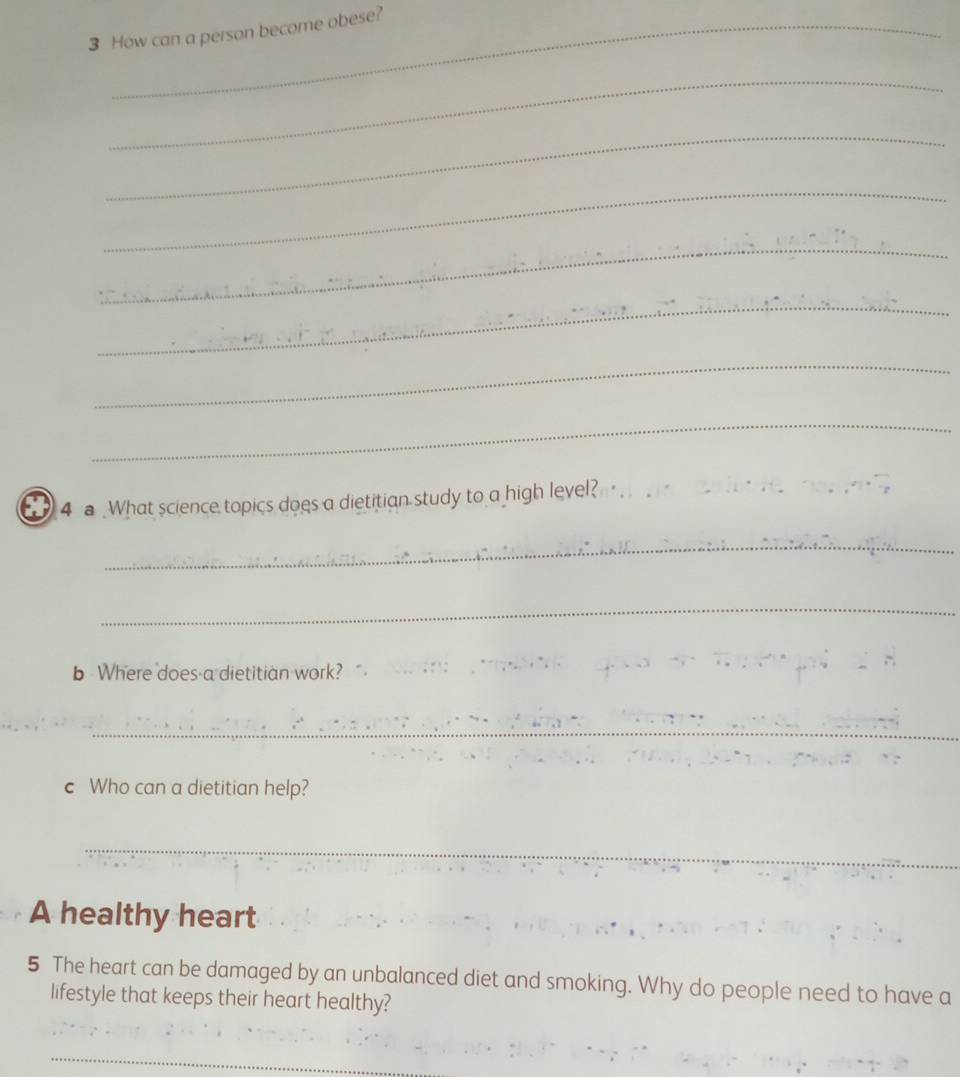 3 How can a person become obese?
4 a What science topics does a dietitian study to a high level?
b Where does a dietitian work?
c Who can a dietitian help?
A healthy heart
5 The heart can be damaged by an unbalanced diet and smoking. Why do people need to have a
lifestyle that keeps their heart healthy?